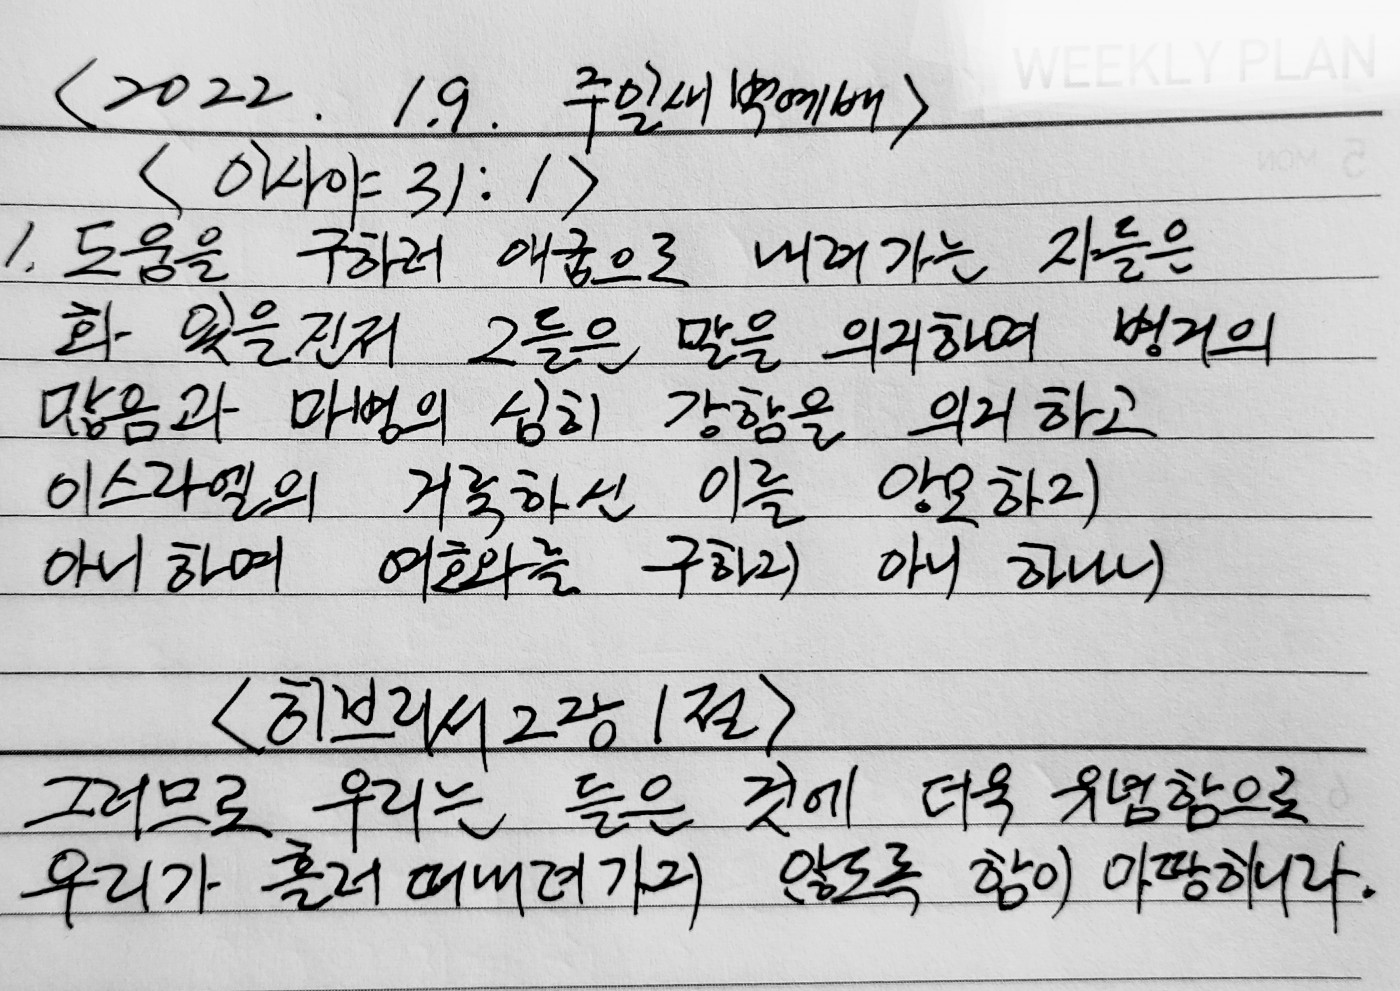 WEEKLY PLAN
<2022. 1.9. 주일새벽예배>
5 MON
<이사야 31:1>
1. 도움을 구하러 애굽으로 내려가는 자들은
화 있을진저 그들은 말을 의지하며 병거의
많음과 마병의 심히 강함을 의지하고
이스라엘의 거룩하신 이를 앙모하지
아니하며 여호와를 구하지 아니 하나니
<히브리서 2장 1절>
그러므로 우리는 들은 것에 더욱 유념함으로
6
우리가 흘러 떠내려가지 않도록 함이 마땅하니라.